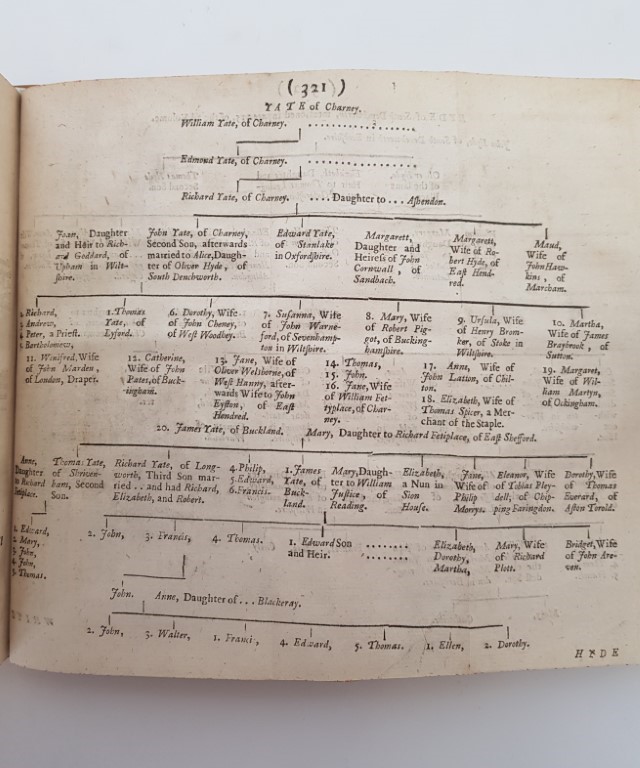 (321)
YATE of Charney.
William Yate, of Charney. ..................
Edmond Yate, of Charney. ..................
Richard Yate, of Charney. .... Daughter to ... Ashendon.
Joan, Daughter
and Heir to Rich-
ard Goddard, of
Upham in Wilt-
shire.
John Yate, of Charney,
Second Son, afterwards
married to Alice, Daugh-
ter of Oliver Hyde, of
South Denchworth.
Edward Yate,
of Stanlake
in Oxfordshire.
Margarett,
Daughter and
Heiress of John
Cornwall, of
Sandbach.
Margarett,
Wife of Ro-
bert Hyde, of
East Hend-
red.
Maud,
Wife of
John Haw-
kins, of
Marcham.
2. Richard,
3. Andrew,
4. Peter, a Priest.
5. Bartholomew,
1. Thomas
Yate, of
Lyford.
6. Dorothy, Wife
of John Cheney,
of West Woodhey.
7. Susanna, Wife
of John Warne-
ford, of Sevenhamp-
ton in Wiltshire.
8. Mary, Wife
of Robert Pig-
got, of Bucking-
hamshire.
9. Ursula, Wife
of Henry Brom-
ker, of Stoke in
Wiltshire.
10. Martha,
Wife of James
Braybrook, of
Sutton.
11. Winifred, Wife
of John Marden,
of London, Draper.
12. Catherine,
Wife of John
Pates, of Buck-
ingham.
13. Jane, Wife of
Oliver Welsborne, of
West Hanny, after-
wards Wife to John
Eyston, of East
Hendred.
14. Thomas,
15. John.
16. Jane, Wife
of William Fet-
typlace, of Char-
ney.
17. Anne, Wife of
John Latton, of Chil-
ton.
18. Elizabeth, Wife of
Thomas Spicer, a Mer-
chant of the Staple.
19. Margaret,
Wife of Wil-
liam Martyn,
of Ockingham.
20. James Yate, of Buckland.
Mary, Daughter to Richard Fetiplace, of East Shefford.
Anne,
Daughter
to Richard
Fetiplace.
Thomas Yate,
of Shriven-
ham, Second
Son.
Richard Yate, of Long-
worth, Third Son mar-
ried .. and had Richard,
Elizabeth, and Robert.
4. Philip,
5. Edward,
6. Francis.
1. James
Yate, of
Buck-
land.
Mary, Daugh-
ter to William
Justice, of
Reading.
Elizabeth,
a Nun in
Sion
House.
Jane,
Wife of
Philip
Morrys.
Eleanor, Wife
of Tobias Pley-
dell, of Chip-
ping Faringdon.
Dorothy, Wife
of Thomas
Everard, of
Aston Torold.
1. Edward,
2. Mary,
3. John,
4. John,
5. Thomas.
2. John,
3. Francis,
4. Thomas.
1. Edward Son
and Heir.
........
........
Elizabeth,
Dorothy,
Martha,
Mary, Wife
of Richard
Plott.
Bridget, Wife
of John Are-
ven.
John.
Anne, Daughter of ... Blackeray.
2. John,
3. Walter,
1. Francis,
4. Edward,
5. Thomas.
1. Ellen,
2. Dorothy.
HYDE